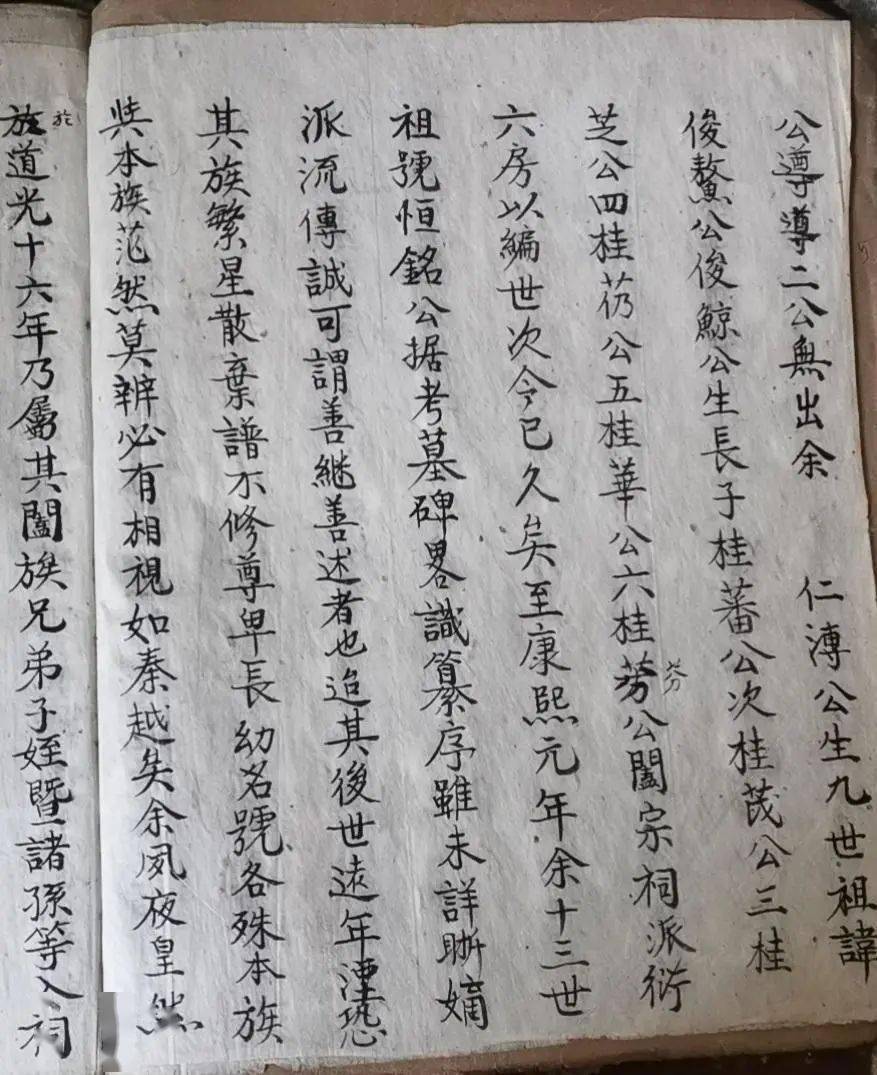 公遵導二公無出余　仁溥公生九世祖諱
俊鰲公俊鯨公生長子桂蕃公次桂茂公三桂
芝公四桂芿公五桂華公六桂芳公闔宗祠派衍
芬
六房以編世次今已久矣至康熙元年余十三世
祖號恒銘公据考墓碑畧識纂序雖未詳晰嫡
派流傳誠可謂善継善述者也迨其後世遠年湮恐
其族繁星散棄譜不修尊卑長幼名號各殊本族
與本族茫然莫辨必有相視如秦越矣余夙夜皇然
於
於道光十六年乃屬其闔族兄弟子姪暨諸孫等入祠